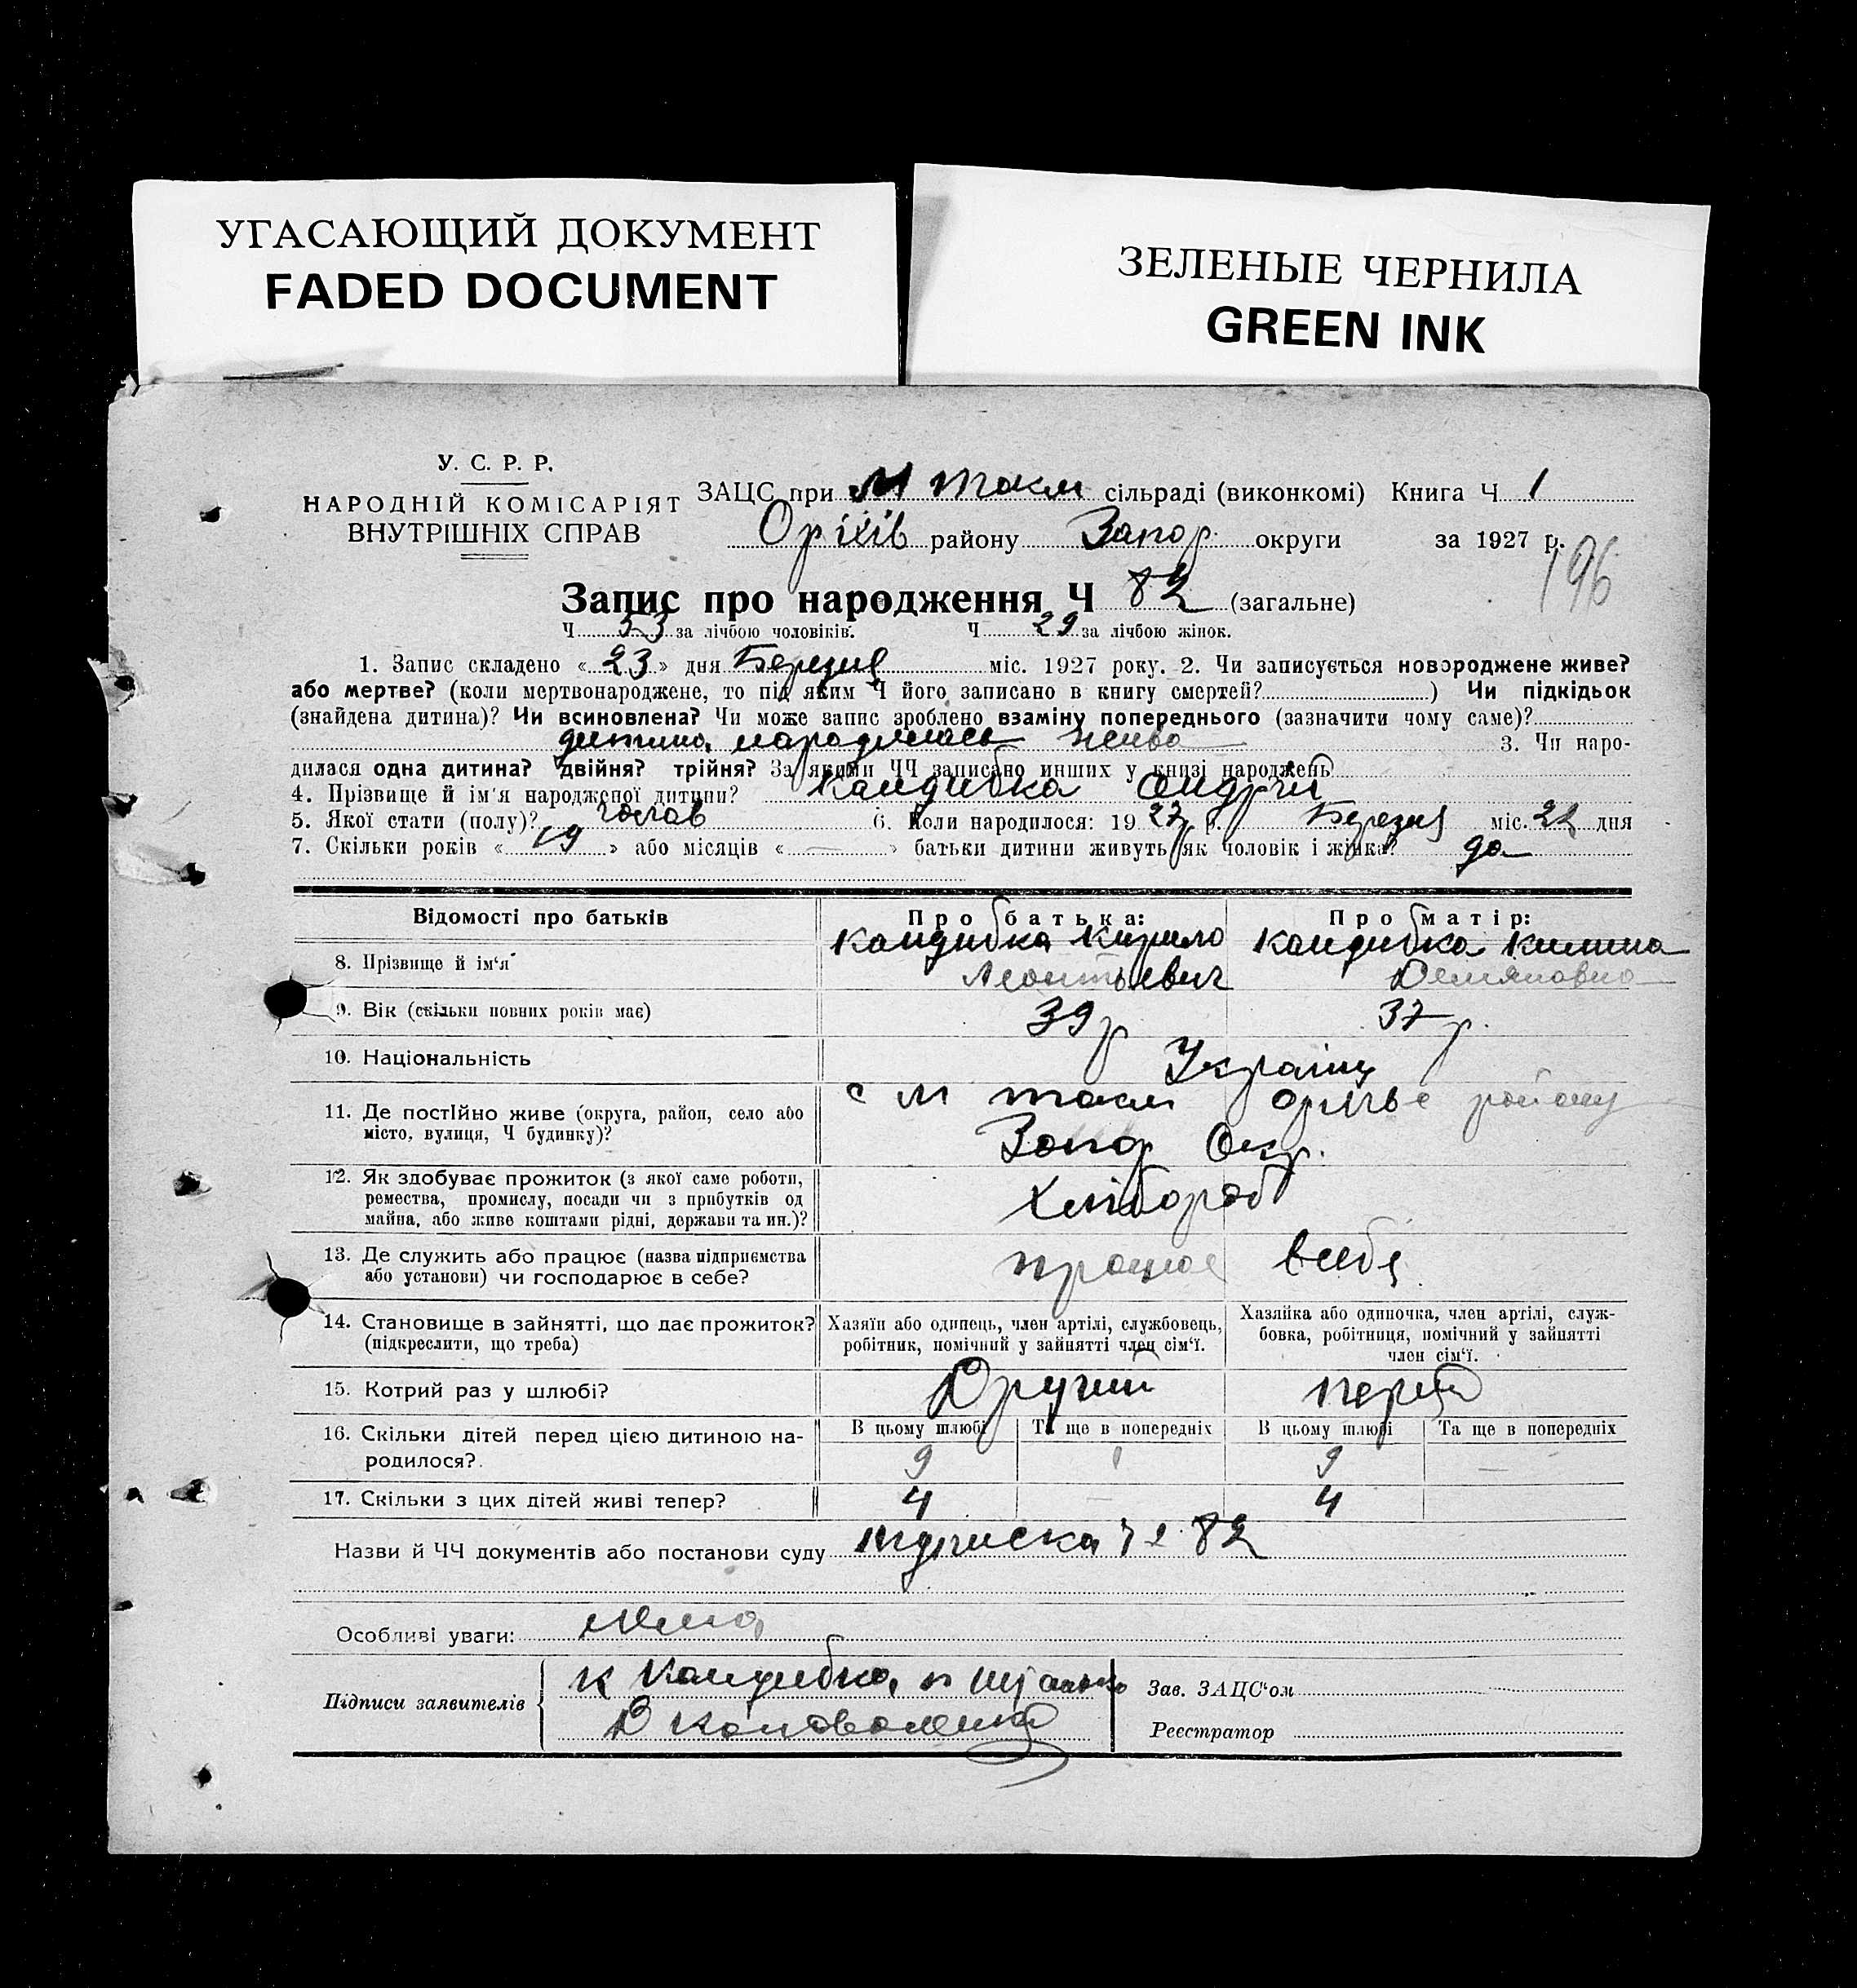 УГАСАЮЩИЙ ДОКУМЕНТ
FADED DOCUMENT
ЗЕЛЕНЫЕ ЧЕРНИЛА
GREEN INK
У. С. Р. Р.
НАРОДНІЙ КОМІСАРІЯТ
ВНУТРІШНІХ СПРАВ
ЗАЦС при М Токм сільраді (виконкомі) Книга Ч 1
Оріхів району Запор. округи за 1927 р.
196
Запис про народження Ч 82 (загальне)
Ч 53 за лічбою чоловіків. Ч 29 за лічбою жінок.
1. Запис складено « 23 » дня Березня міс. 1927 року. 2. Чи записується новороджене живе?
або мертве? (коли мертвонароджене, то під яким Ч його записано в книгу смертей? ) Чи підкідьок
(знайдена дитина)? Чи всиновлена? Чи може запис зроблено взаміну попереднього (зазначити чому саме)?
дитина народилась жива 3. Чи наро-
дилася одна дитина? двійня? трійня? За якими ЧЧ записано инших у книзі народжень
4. Прізвище й ім'я народженої дитини? Кандибка Андрій
5. Якої стати (полу)? чолов 6. Коли народилося: 19 27 р. Березня міс. 22 дня
7. Скільки років « 19 » або місяців « — » батьки дитини живуть як чоловік і жінка? да
Відомості про батьків Про батька: Про матір:
8. Прізвище й ім'я Кандибка Кирило Кандибка Килина
Леонтьевич Демяновна
9. Вік (скільки повних років має) 39 р 37 р.
10. Національність Украінц
11. Де постійно живе (округа, район, село або
місто, вулиця, Ч будинку)?
с М Токм Оріхівс району
Запор Окр.
12. Як здобуває прожиток (з якої саме роботи,
ремества, промислу, посади чи з прибутків од
майна, або живе коштами рідні, держави та ин.)?
Хлібороб
13. Де служить або працює (назва підприємства
або установи) чи господарює в себе?
працює всебе
14. Становище в зайнятті, що дає прожиток?
(підкреслити, що треба)
Хазяїн або одинець, член артілі, службовець,
робітник, помічний у зайнятті член сім'ї.
Хазяйка або одиночка, член артілі, служ-
бовка, робітниця, помічний у зайнятті
член сім'ї.
15. Котрий раз у шлюбі? Другий перший
16. Скільки дітей перед цією дитиною на-
родилося?
В цьому шлюбі Та ще в попередніх В цьому шлюбі Та ще в попередніх
9 1 9 —
17. Скільки з цих дітей живі тепер? 4 — 4
Назви й ЧЧ документів або постанови суду Підписка 82
Особливі уваги: Нема
Підписи заявителів
К Кандибка,
В Коновалица
Зав. ЗАЦС'ом
Реєстратор